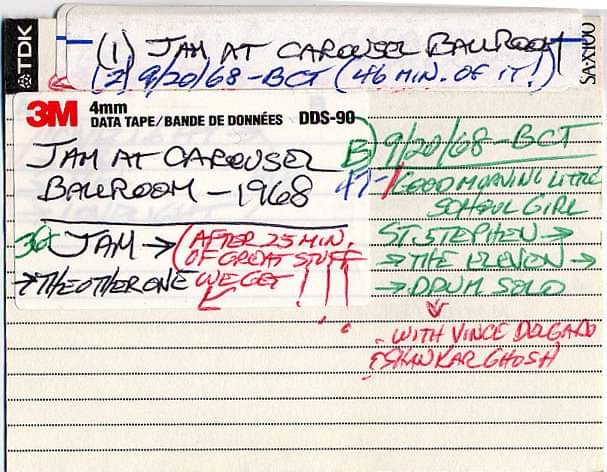 TDK
(1) JAM AT CAROUSEL BALLROOM
(2) 9/20/68-BCT (46 MIN. OF IT!)
SA-X100
3M 4mm
DATA TAPE/BANDE DE DONNÉES DDS-90
JAM AT CAROUSEL
BALLROOM - 1968
JAM → (AFTER 25 MIN.
OF GREAT STUFF
→ THE OTHER ONE WE GET !!!
B) 9/20/68-BCT
47- GOOD MORNING LITTLE
SCHOOL GIRL
ST. STEPHEN →
→ THE ELEVEN →
→ DRUM SOLO
WITH VINCE DELGADO
& SHANKAR GHOSH